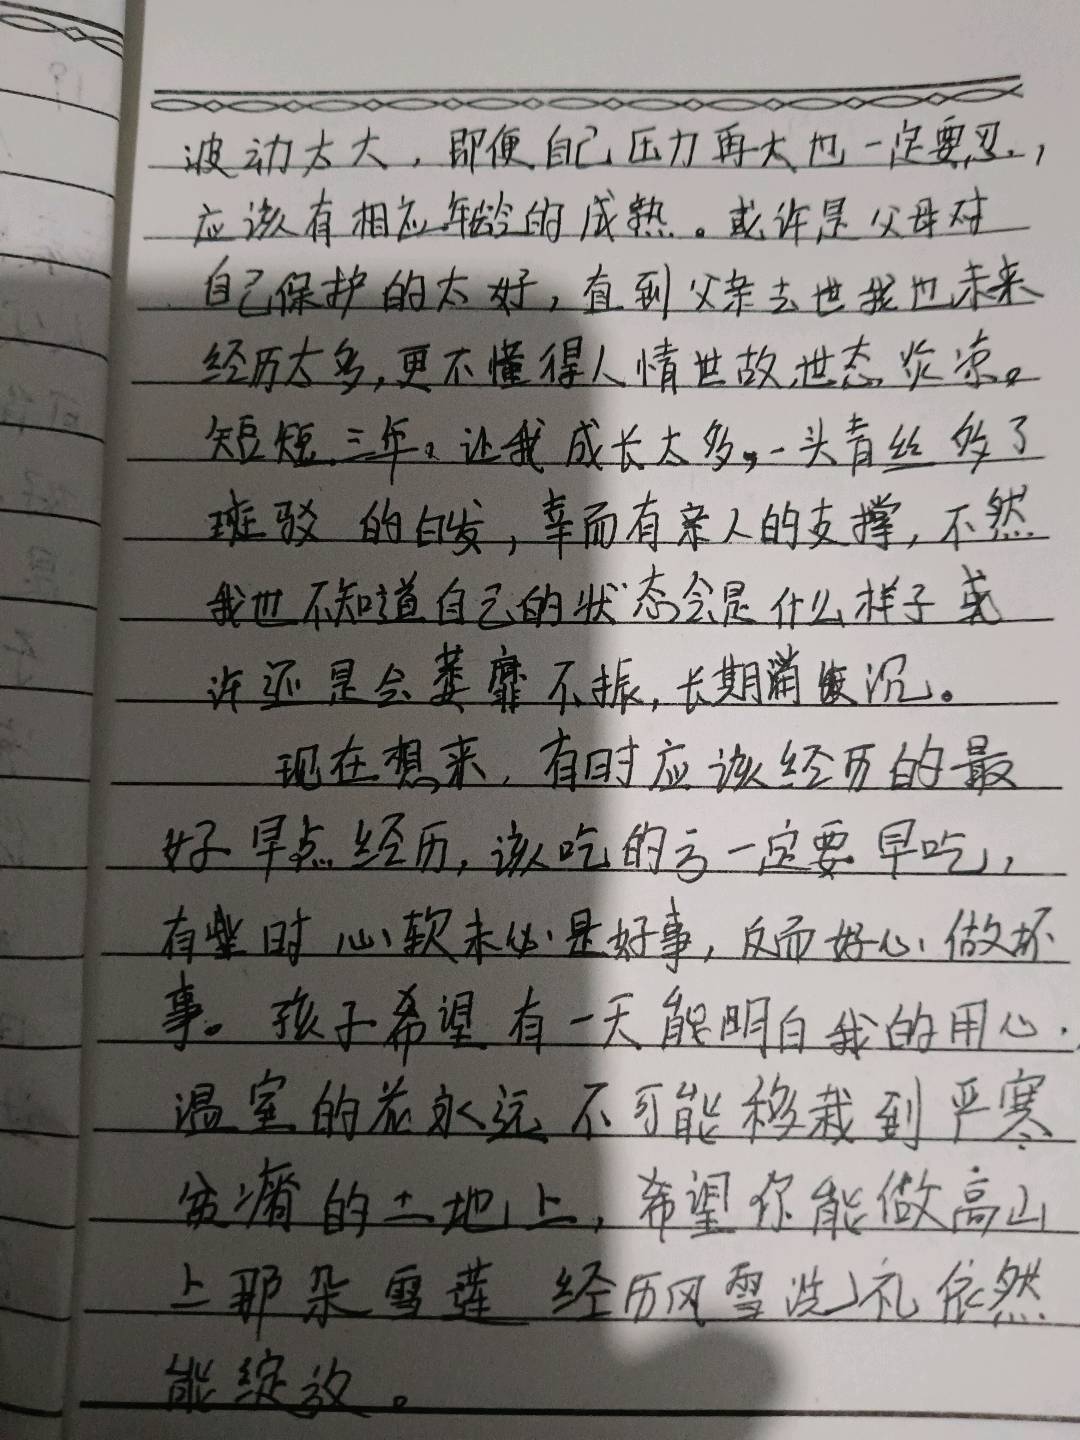 波动太大，即便自己压力再大也一定要忍，
应该有相应年龄的成熟。或许是父母对
自己保护的太好，直到父亲去世我也未来
经历太多，更不懂得人情世故，世态炎凉。
短短三年。让我成长太多，一头青丝多了
班驳的白发，幸而有亲人的支撑，不然
我也不知道自己的状态会是什么样子或
许还是会萎靡不振，长期消沉。
现在想来，有时应该经历的最
好早点经历，该吃的亏一定要早吃，
有些时心软未必是好事，反而好心做坏
事。孩子希望有一天能明白我的用心.
温室的花永远不可能移栽到严寒
贫瘠的土地上，希望你能做高山
上那朵雪莲 经历风雪洗礼依然
能绽放。